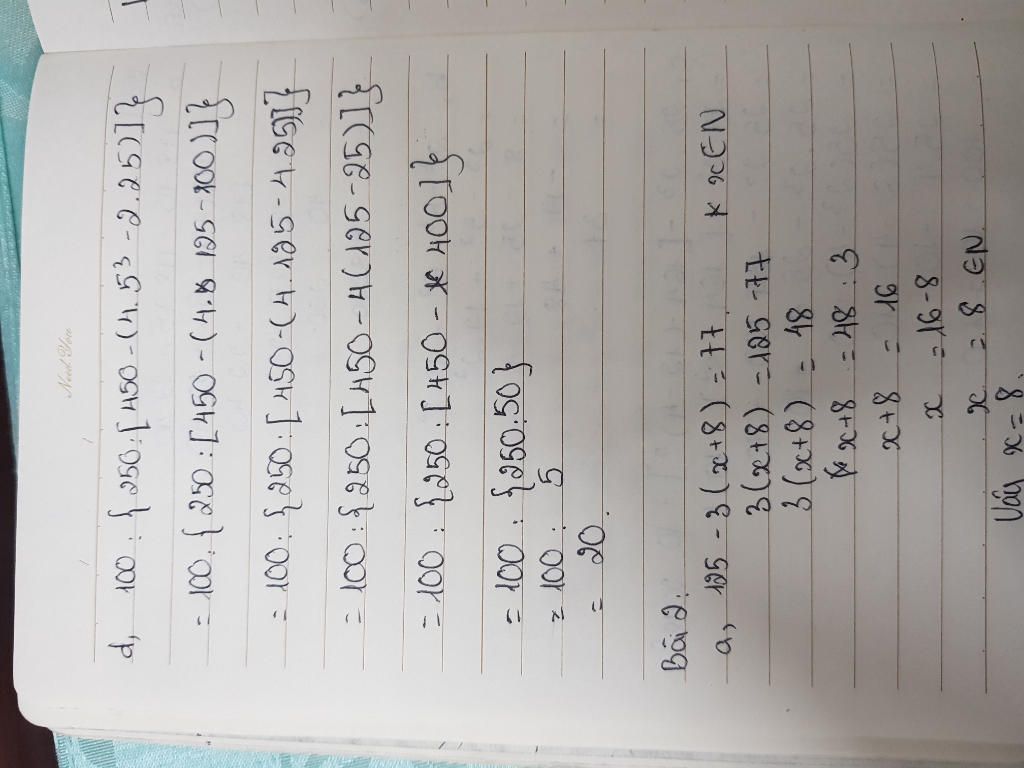 Need You
d, 100 : {250 : [450 - (4.5³ - 2.25)]}
= 100 : {250 : [450 - (4. 125 - 100)]}
= 100 : {250 : [450 - (4.125 - 4.25)]}
= 100 : {250 : [450 - 4(125 - 25)]}
= 100 : {250 : [450 - 400]}
= 100 : {250:50}
= 100 : 5
= 20.
Bài 2:
a, 125 - 3(x+8) = 77 x∈N
3(x+8) = 125 - 77
3(x+8) = 48
x+8 = 48 : 3
x+8 = 16
x = 16 - 8
x = 8 ∈N
Vậy x = 8.